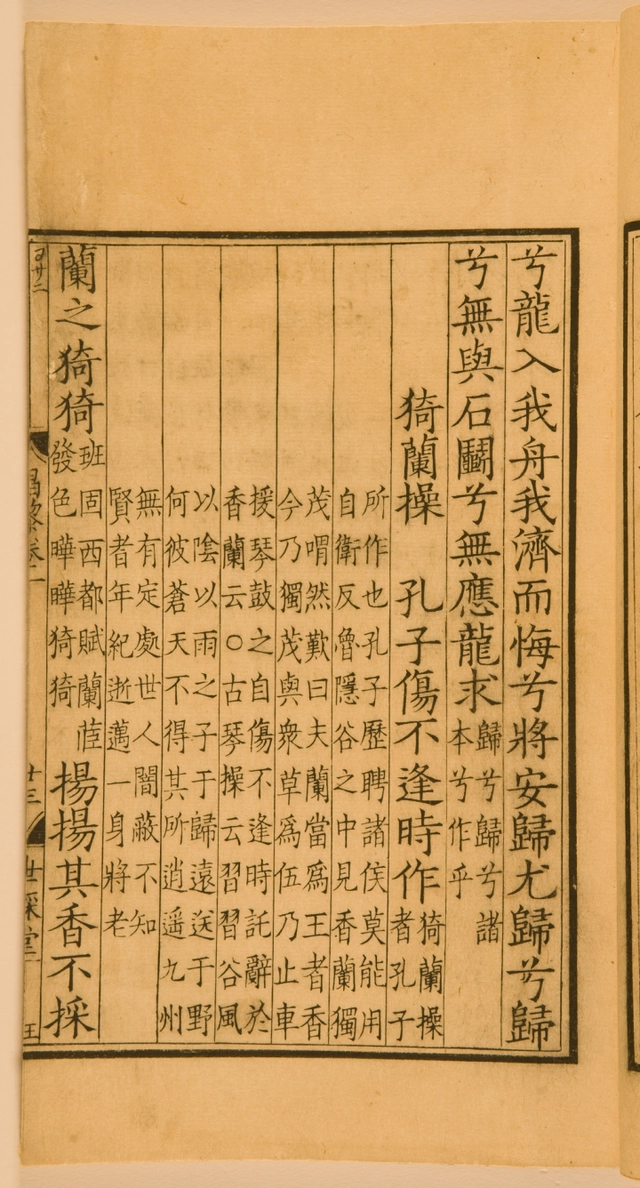 兮龍入我舟我濟而悔兮將安歸尤歸兮歸
兮無與石鬭兮無應龍求歸兮歸兮諸本兮作乎
猗蘭操　孔子傷不逢時作猗蘭操者孔子
所作也孔子歷聘諸侯莫能用
自衛反魯隱谷之中見香蘭獨
茂喟然歎曰夫蘭當爲王者香
今乃獨茂與衆草爲伍乃止車
援琴鼓之自傷不逢時託辭於
香蘭云○古琴操云習習谷風
以陰以雨之子于歸遠送于野
何彼蒼天不得其所逍遥九州
無有定處世人闇蔽不知
賢者年紀逝邁一身將老
蘭之猗猗班固西都賦蘭茝發色曄曄猗猗揚揚其香不採
昌黎卷一　廿三　世綵堂　王